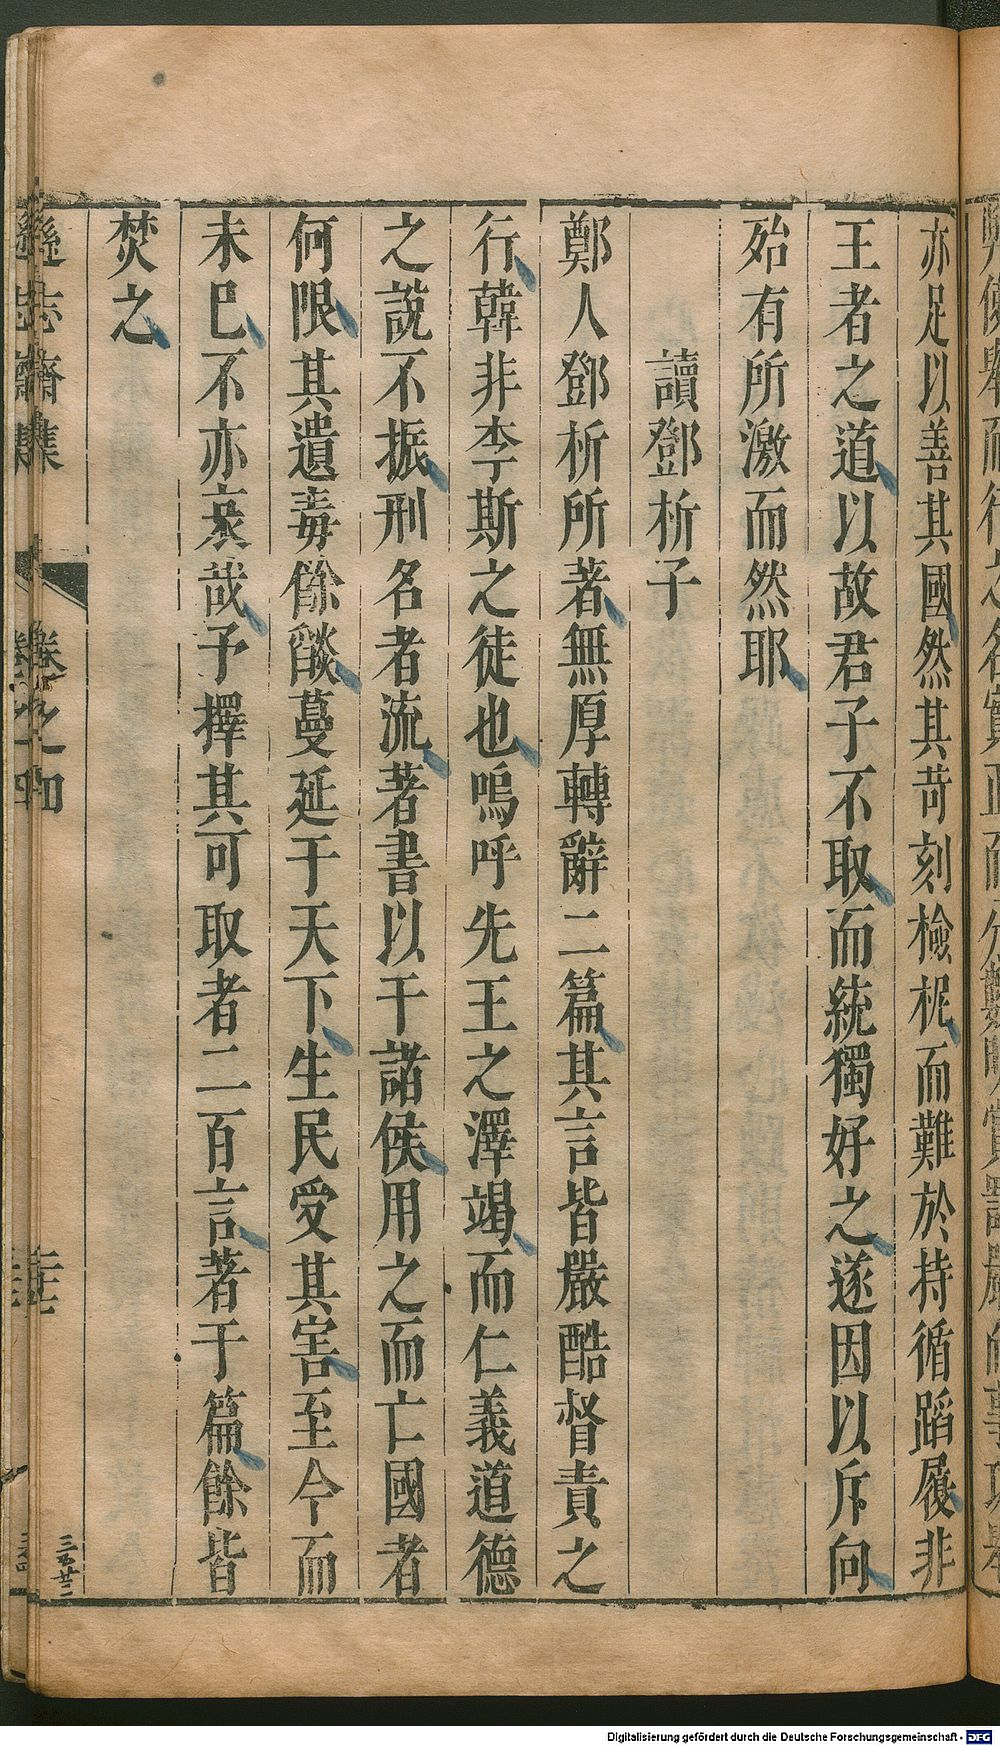 亦足以善其國然其苛刻檢柅而難於持循蹈履非
王者之道以故君子不取而統獨好之遂因以斥向
殆有所激而然耶
讀鄧析子
鄭人鄧析所著無厚轉辭二篇其言皆嚴酷督責之
行韓非李斯之徒也嗚呼先王之澤竭而仁義道德
之說不振刑名者流著書以干諸侯用之而亡國者
何限其遺毒餘燄蔓延于天下生民受其害至今而
未已不亦哀哉予擇其可取者二百言著于篇餘皆
焚之
遜志齋集
卷之四
三百廿二
Digitalisierung gefördert durch die Deutsche Forschungsgemeinschaft - DFG